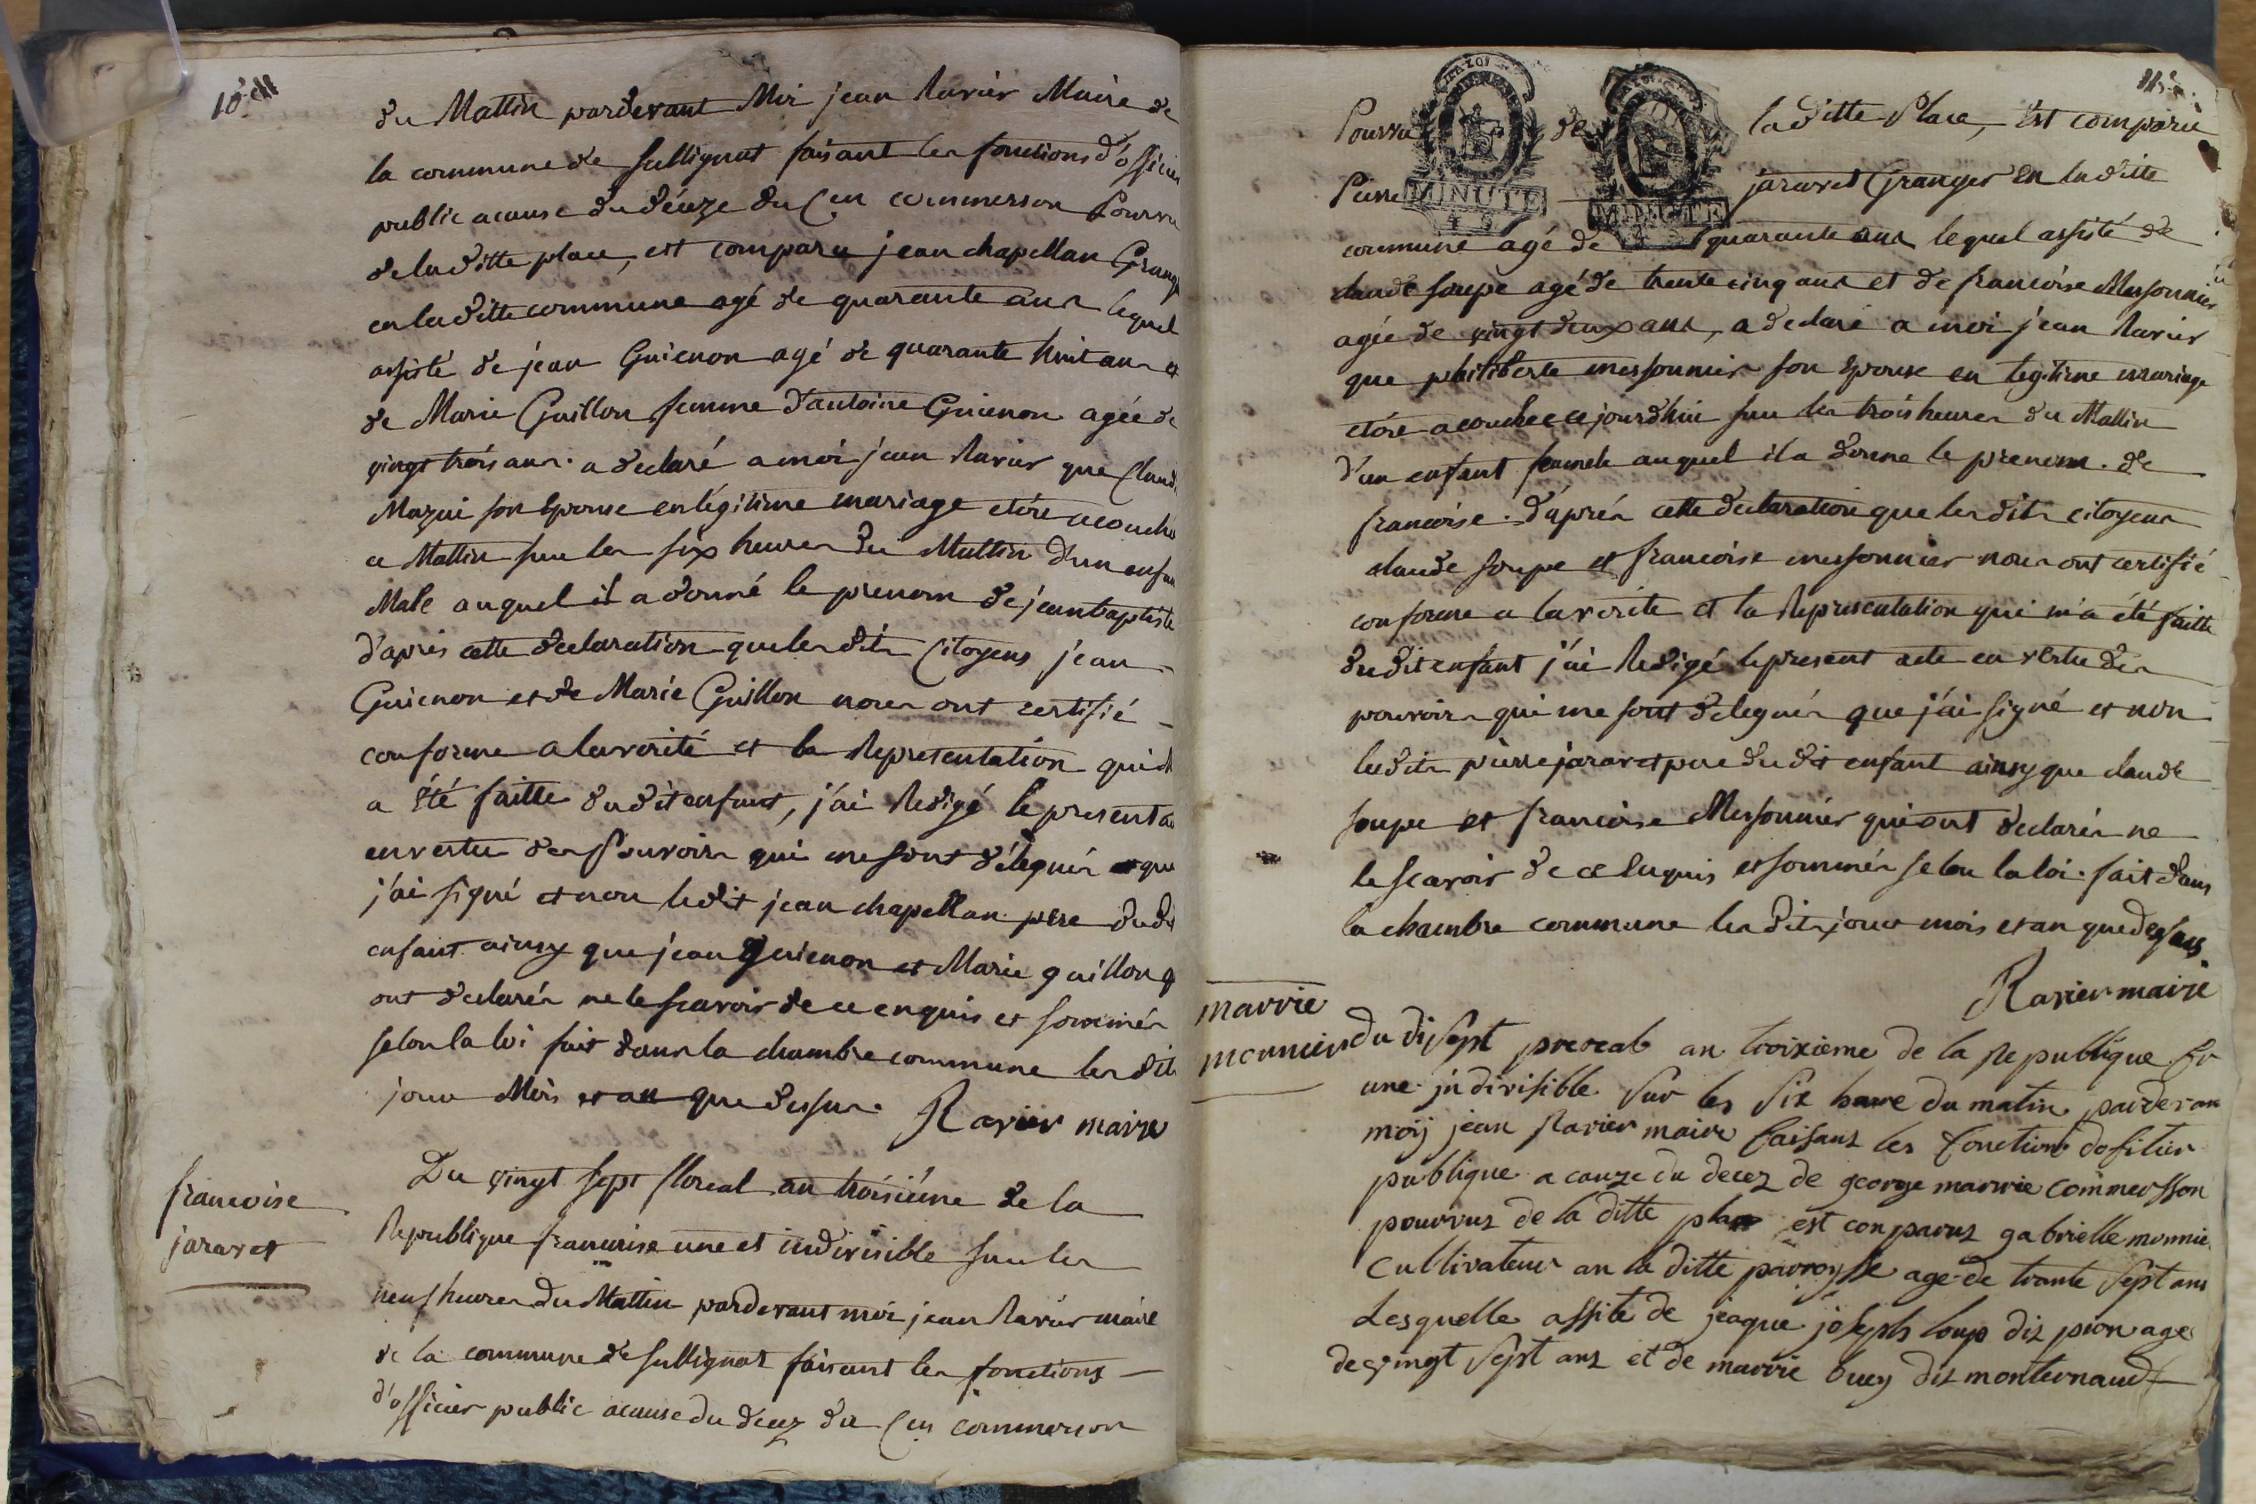 10.eme
du Mattin pardevant Moi jean Ravier Maire de
la commune de Sullignat faisant les fonctions d'officier
public acause du déceze du Cen commerson Pourvu
de laditte place, est comparu jean chapellan Grang
en laditte commune agé de quarante ans lequel
assisté de jean Guienon agé de quarante huit ans et
de Marie Guillon femme d'antoine Guienon agée de
vingt trois ans. a declaré a moi jean Ravier que Claud
Mazui son Epouse en légitime mariage etóre acouché
ce Mattin sur les six heures du Mattin d'un enfan
Male auquel il a donné le prenom de jeanbaptiste
d'aprés cette declaration que les dits Citoyens jean
Guienon et de Marie Guillon nous ont certifié
conforme a la verité et la Representation qui
a été faitte dudit enfant, j'ai Redigé le present a
en vertu des Pouvoirs qui me sont délegués et que
j'ai signé et non ledit jean chapellan pere dudi
enfant ainsy que jean guienon et Marie guillon q
ont declarés ne le scavoir de ce enquis et sommés
selon la loi fait dans la chambre commune les dit
jour Mois et an que dessus. Ravier maire
francoise
jararet
Du vingt sept floreal an troisiéme de la
Republique francaise une et indivisible sur les
neuf heures du Mattin pardevant moi jean Ravier maire
de la commune de Sullignat faisant les fonctions
d'officier public acause du decez du Cen commerson
Pourvu de laditte Place, Est comparu
MINUTE MINUTE
Pierre jararet Granger en laditte
commune agé de quarante ans lequel assisté de
claude soupe agé de trente cinq ans et de francoise Messonnier
agée de vingt deux ans, a declaré a moi jean Ravier
que philiberte messonnier son Epouse en legitime mariage
etóre acouchee ce jourdhui sur les trois heures du Mattin
d'un enfant femele auquel il a donne le prenom. de
francoise. d'aprés cette declaration que les dits citoyens
claude soupe et francoise messonnier nous ont certifié
conforme a la verite et la Representation qui m'a été faitte
du dit enfant j'ai Redigé le present acte en vertu des
pouvoirs qui me sont delegués que j'ai signé et non
ledits pierre jararet pere du dit enfant ainsy que claude
soupe et francoise Messonnier qui ont declarés ne
le scavoir de ce Enquis et sommés selon la loi. fait dans
la chambre commune les dits jour mois et an que dessus.
Ravier maire
marrie
monnier
du disept prereal an troixieme de la Republique fr
une indivisible sur les six heure du matin parderan
moij jean Ravier maire faisant les fonction dofitier
publique a cauze du decez de george marrie commersson
pourvus de la ditte place est conparus gabrielle monnie
Cultivateur an la ditte parroysse age de trante sept ans
Lesquelle assite de jeaque joseph loup dit pion age
de vingt sept ans et de marrie buey dit monternaud